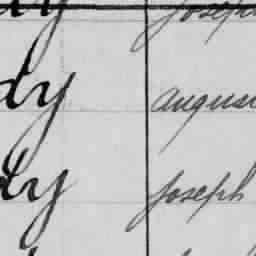 dy Joseph
dy Augus
dy Joseph